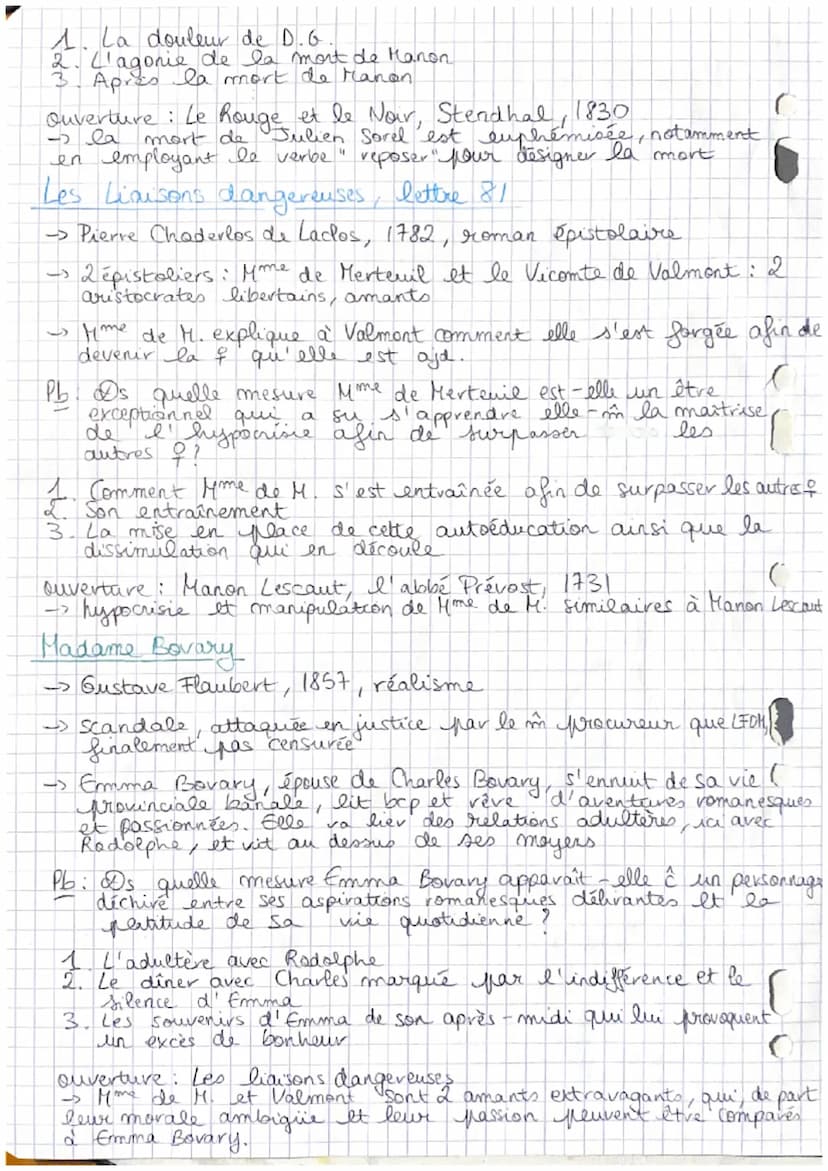 1. La douleur de D.G.
2. L'agonie de la mort de Manon
3. Après la mort de Manon
Ouverture : Le Rouge et le Noir, Stendhal, 1830
-> la mort de Julien Sorel est euphémisée, notamment
en employant le verbe "reposer" pour désigner la mort
Les Liaisons dangereuses, lettre 81
-> Pierre Choderlos de Laclos, 1782, roman épistolaire
-> 2 épistoliers : Mme de Merteuil et le Vicomte de Valmont : 2
aristocrates libertains, amants
-> Mme de M. explique à Valmont comment elle s'est forgée afin de
devenir la ♀ qu'elle est ajd.
Pb : Ds quelle mesure Mme de Merteuil est-elle un être
exceptionnel qui a su s'apprendre elle-m̂ la maîtrise
de l'hypocrisie afin de surpasser les
autres ♀ ?
1. Comment Mme de M. s'est entraînée afin de surpasser les autres ♀
2. Son entraînement
3. La mise en place de cette autoéducation ainsi que la
dissimulation qui en découle
ouverture : Manon Lescaut, l'abbé Prévost, 1731
-> hypocrisie et manipulation de Mme de M. similaires à Manon Lescaut
Madame Bovary
-> Gustave Flaubert, 1857, réalisme
-> Scandale, attaquée en justice par le m̂ procureur que LFDM,
finalement pas censurée
-> Emma Bovary, épouse de Charles Bovary, s'ennuit de sa vie
provinciale banale, lit bcp et rêve d'aventures romanesques
et passionnées. Elle va lier des relations adultères, ici avec
Rodolphe, et vit au dessus de ses moyens
Pb : Ds quelle mesure Emma Bovary apparaît-elle ĉ un personnage
déchiré entre ses aspirations romanesques délirantes et la
platitude de sa vie quotidienne ?
1. L'adultère avec Rodolphe
2. Le dîner avec Charles marqué par l'indifférence et le
silence d'Emma
3. Les souvenirs d'Emma de son après-midi qui lui provoquent
un excès de bonheur
ouverture : Les liaisons dangereuses
-> Mme de M. et Valmont sont 2 amants extravagants, qui, de part
leur morale ambigüe et leur passion peuvent être comparés
à Emma Bovary.